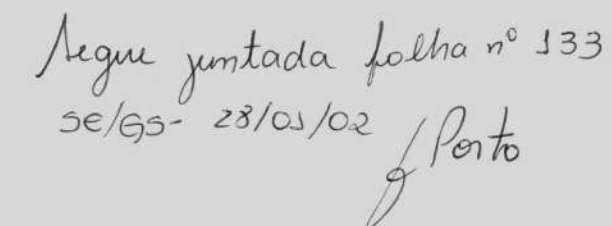 Segue juntada folha nº 133
SE/GS- 28/01/02
Porto